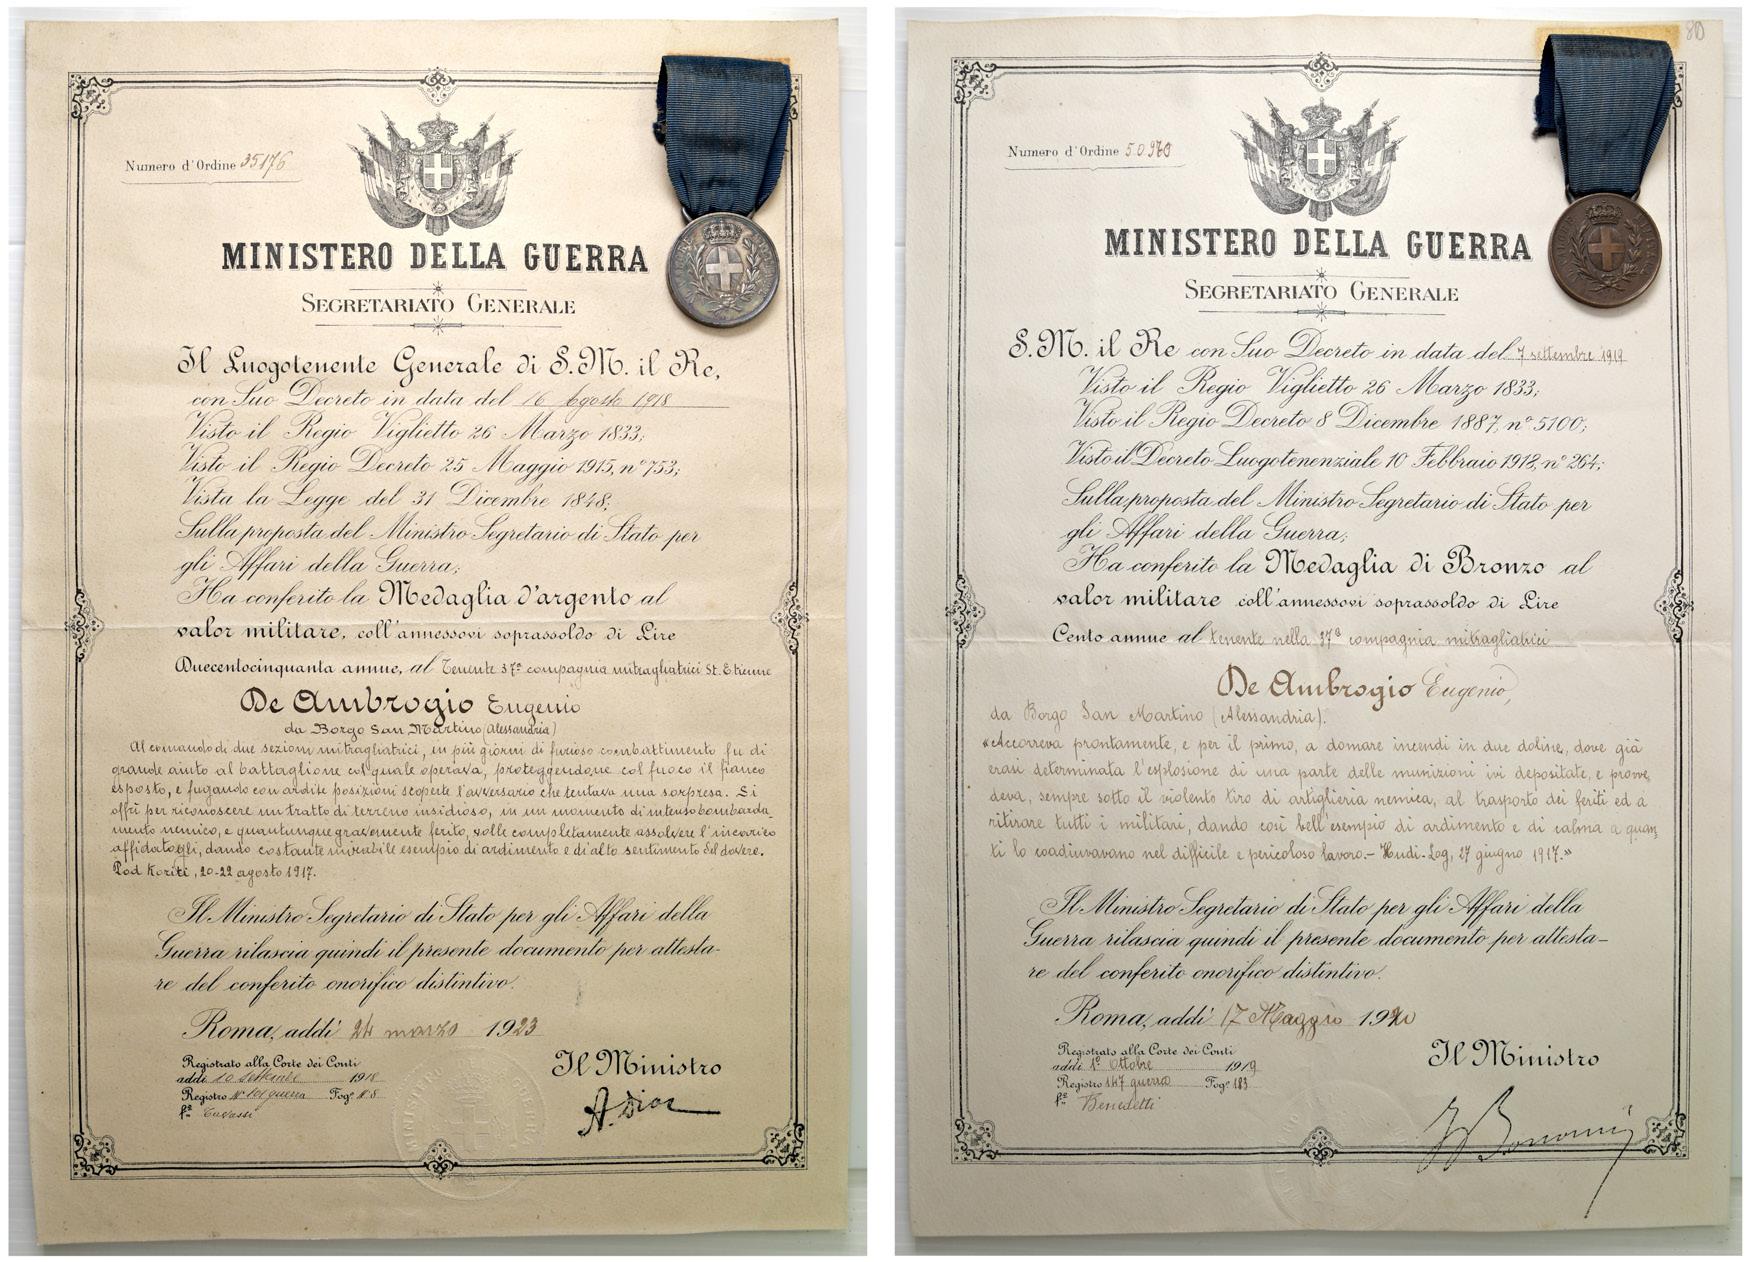 Numero d'Ordine 35176
MINISTERO DELLA GUERRA
SEGRETARIATO GENERALE
Il Luogotenente Generale di S. M. il Re,
con Suo Decreto in data del 16 Agosto 1918
Visto il Regio Viglietto 26 Marzo 1833;
Visto il Regio Decreto 25 Maggio 1915, n° 753;
Vista la Legge del 31 Dicembre 1848;
Sulla proposta del Ministro Segretario di Stato per
gli Affari della Guerra;
Ha conferito la Medaglia d'argento al
valor militare, coll'annessovi soprassoldo di Lire
Duecentocinquanta annue, al Tenente 37ª compagnia mitragliatrici St. Etienne
De Ambrogio Eugenio
da Borgo San Martino (Alessandria)
Al comando di due sezioni mitragliatrici, in più giorni di furioso combattimento fu di
grande aiuto al battaglione col quale operava, proteggendone col fuoco il fianco
esposto, e fugando con ardite posizioni scoperte l'avversario che tentava una sorpresa. Si
offrì per riconoscere un tratto di terreno insidioso, in un momento di intenso bombarda-
mento nemico, e quantunque gravemente ferito, volle completamente assolvere l'incarico
affidatogli, dando costante mirabile esempio di ardimento e di alto sentimento del dovere.
Pod Koriti, 20-22 agosto 1917.
Il Ministro Segretario di Stato per gli Affari della
Guerra rilascia quindi il presente documento per attesta-
re del conferito onorifico distintivo.
Roma, addì 24 marzo 1923
Registrato alla Corte dei Conti
addì 10 Settembre 1918
Registro N° 101 guerra Fog° N° 8
Il Ministro
A. Diaz
80
Numero d'Ordine 50970
MINISTERO DELLA GUERRA
SEGRETARIATO GENERALE
S. M. il Re con Suo Decreto in data del 7 settembre 1919
Visto il Regio Viglietto 26 Marzo 1833;
Visto il Regio Decreto 8 Dicembre 1887, n° 5100;
Visto il Decreto Luogotenenziale 10 Febbraio 1918, n° 264;
Sulla proposta del Ministro Segretario di Stato per
gli Affari della Guerra;
Ha conferito la Medaglia di Bronzo al
valor militare coll'annessovi soprassoldo di Lire
Cento annue al tenente nella 37ª compagnia mitragliatrici
De Ambrogio Eugenio,
da Borgo San Martino (Alessandria).
«Accorreva prontamente, e per il primo, a domare incendi in due doline, dove già
erasi determinata l'esplosione di una parte delle munizioni ivi depositate, e provve-
deva, sempre sotto il violento tiro di artiglieria nemica, al trasporto dei feriti ed a
ritirare tutti i militari, dando così bell'esempio di ardimento e di calma a quan-
ti lo coadiuvavano nel difficile e pericoloso lavoro.- Hudi-Log, 27 giugno 1917.»
Il Ministro Segretario di Stato per gli Affari della
Guerra rilascia quindi il presente documento per attesta-
re del conferito onorifico distintivo.
Roma, addì 17 Maggio 1920
Registrato alla Corte dei Conti
addì 1° Ottobre 1919
Registro 147 guerra Fog° 183
fto Benedetti
Il Ministro
Bonomi